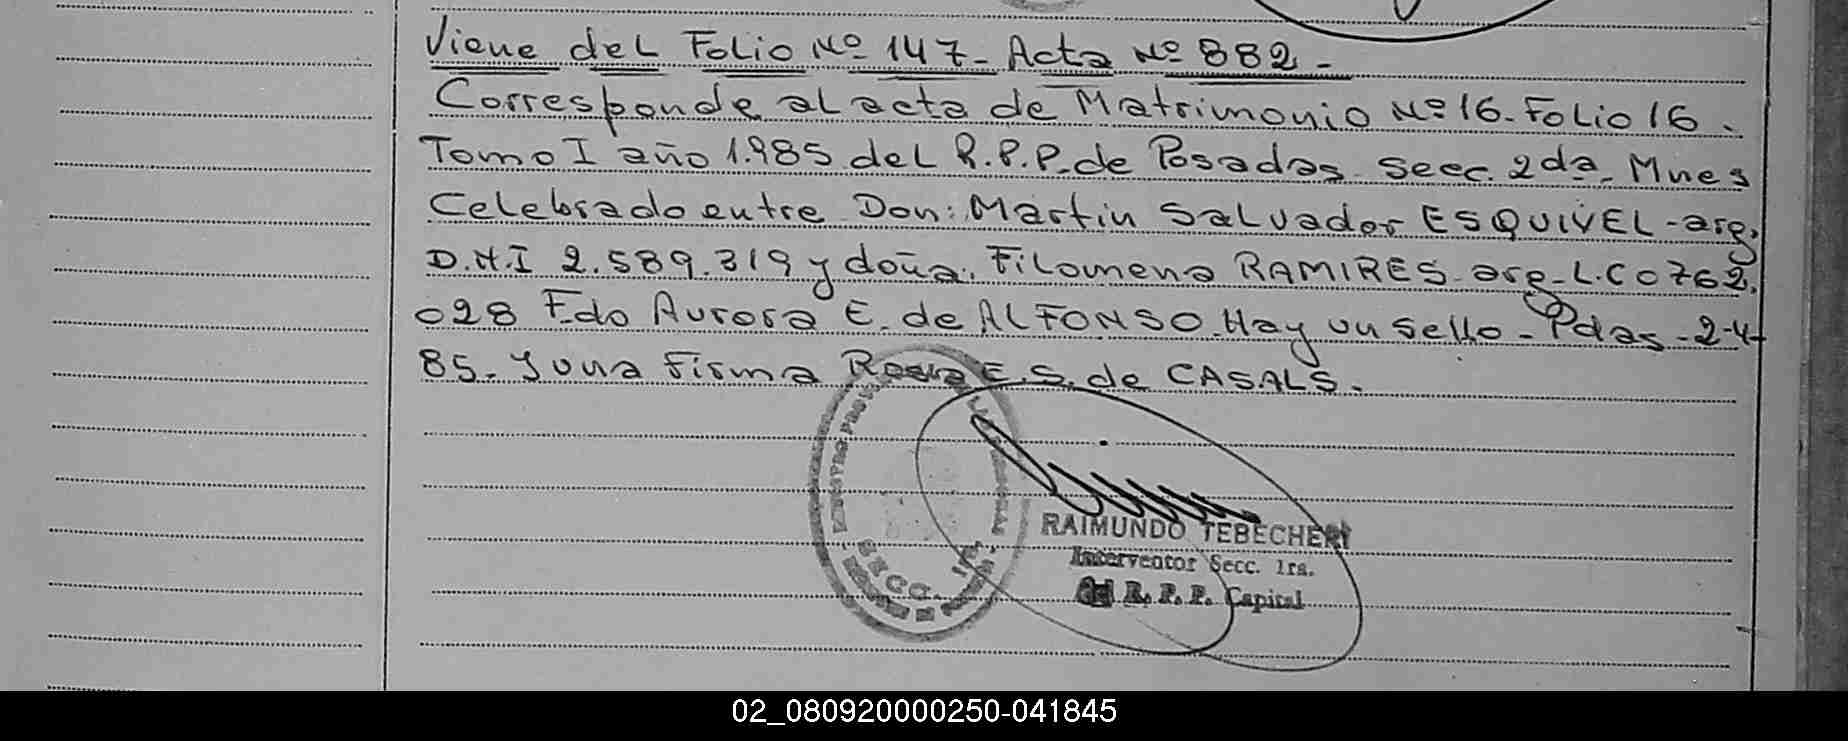 Viene del Folio Nº 147- Acta Nº 882 -
Corresponde al acta de Matrimonio Nº 16. Folio 16.
Tomo I año 1.985 del R.P.P. de Posadas Secc. 2da. Mnes
Celebrado entre Don: Martin Salvador ESQUIVEL - arg.
D.N.I 2.589.319 y doña: Filomena RAMIRES - arg - L.C 0762.
028 Fdo Aurora E. de ALFONSO. Hay un sello - Pdas - 2-4-
85. Y una firma Rosa E.S. de CASALS.
SECC. 1ra.
RAIMUNDO TEBECHERI
Interventor Secc. 1ra.
del R. P. P. Capital
02_080920000250-041845